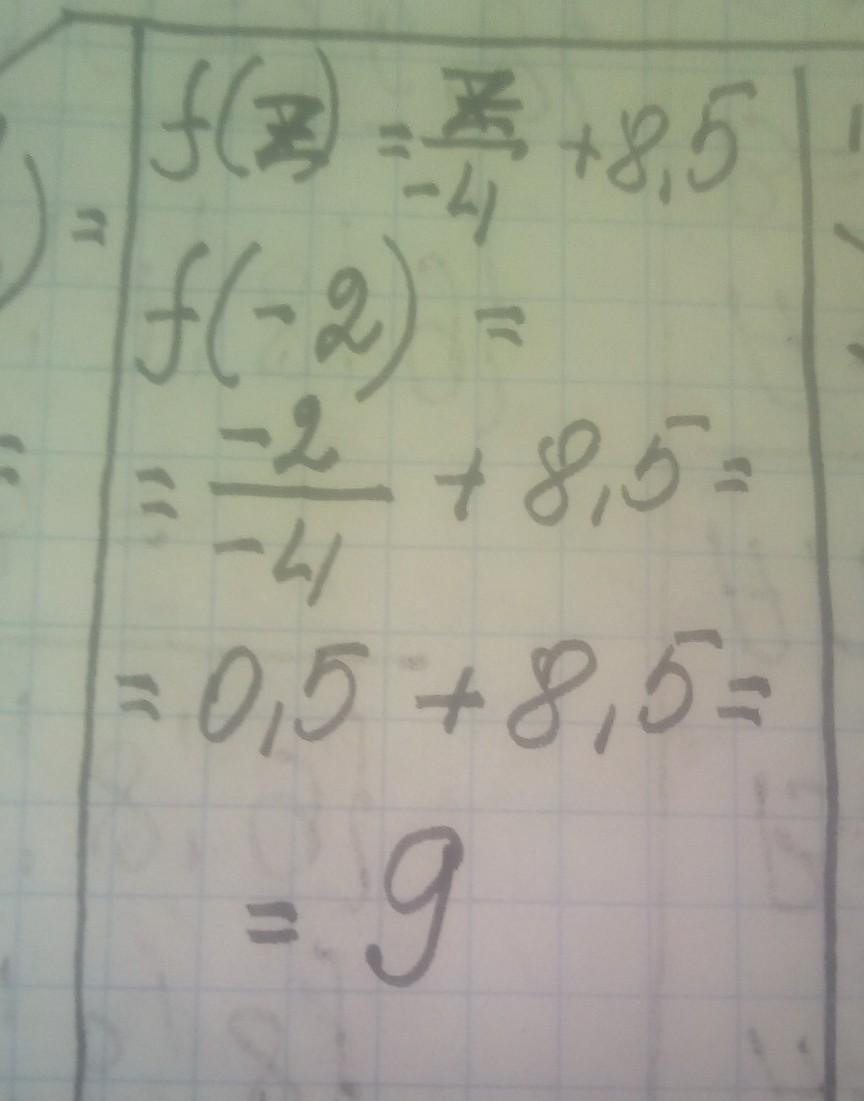 f(x) = x/-4 + 8,5
) =
f(-2) =
= -2/-4 + 8,5 =
=
= 0,5 + 8,5 =
= 9